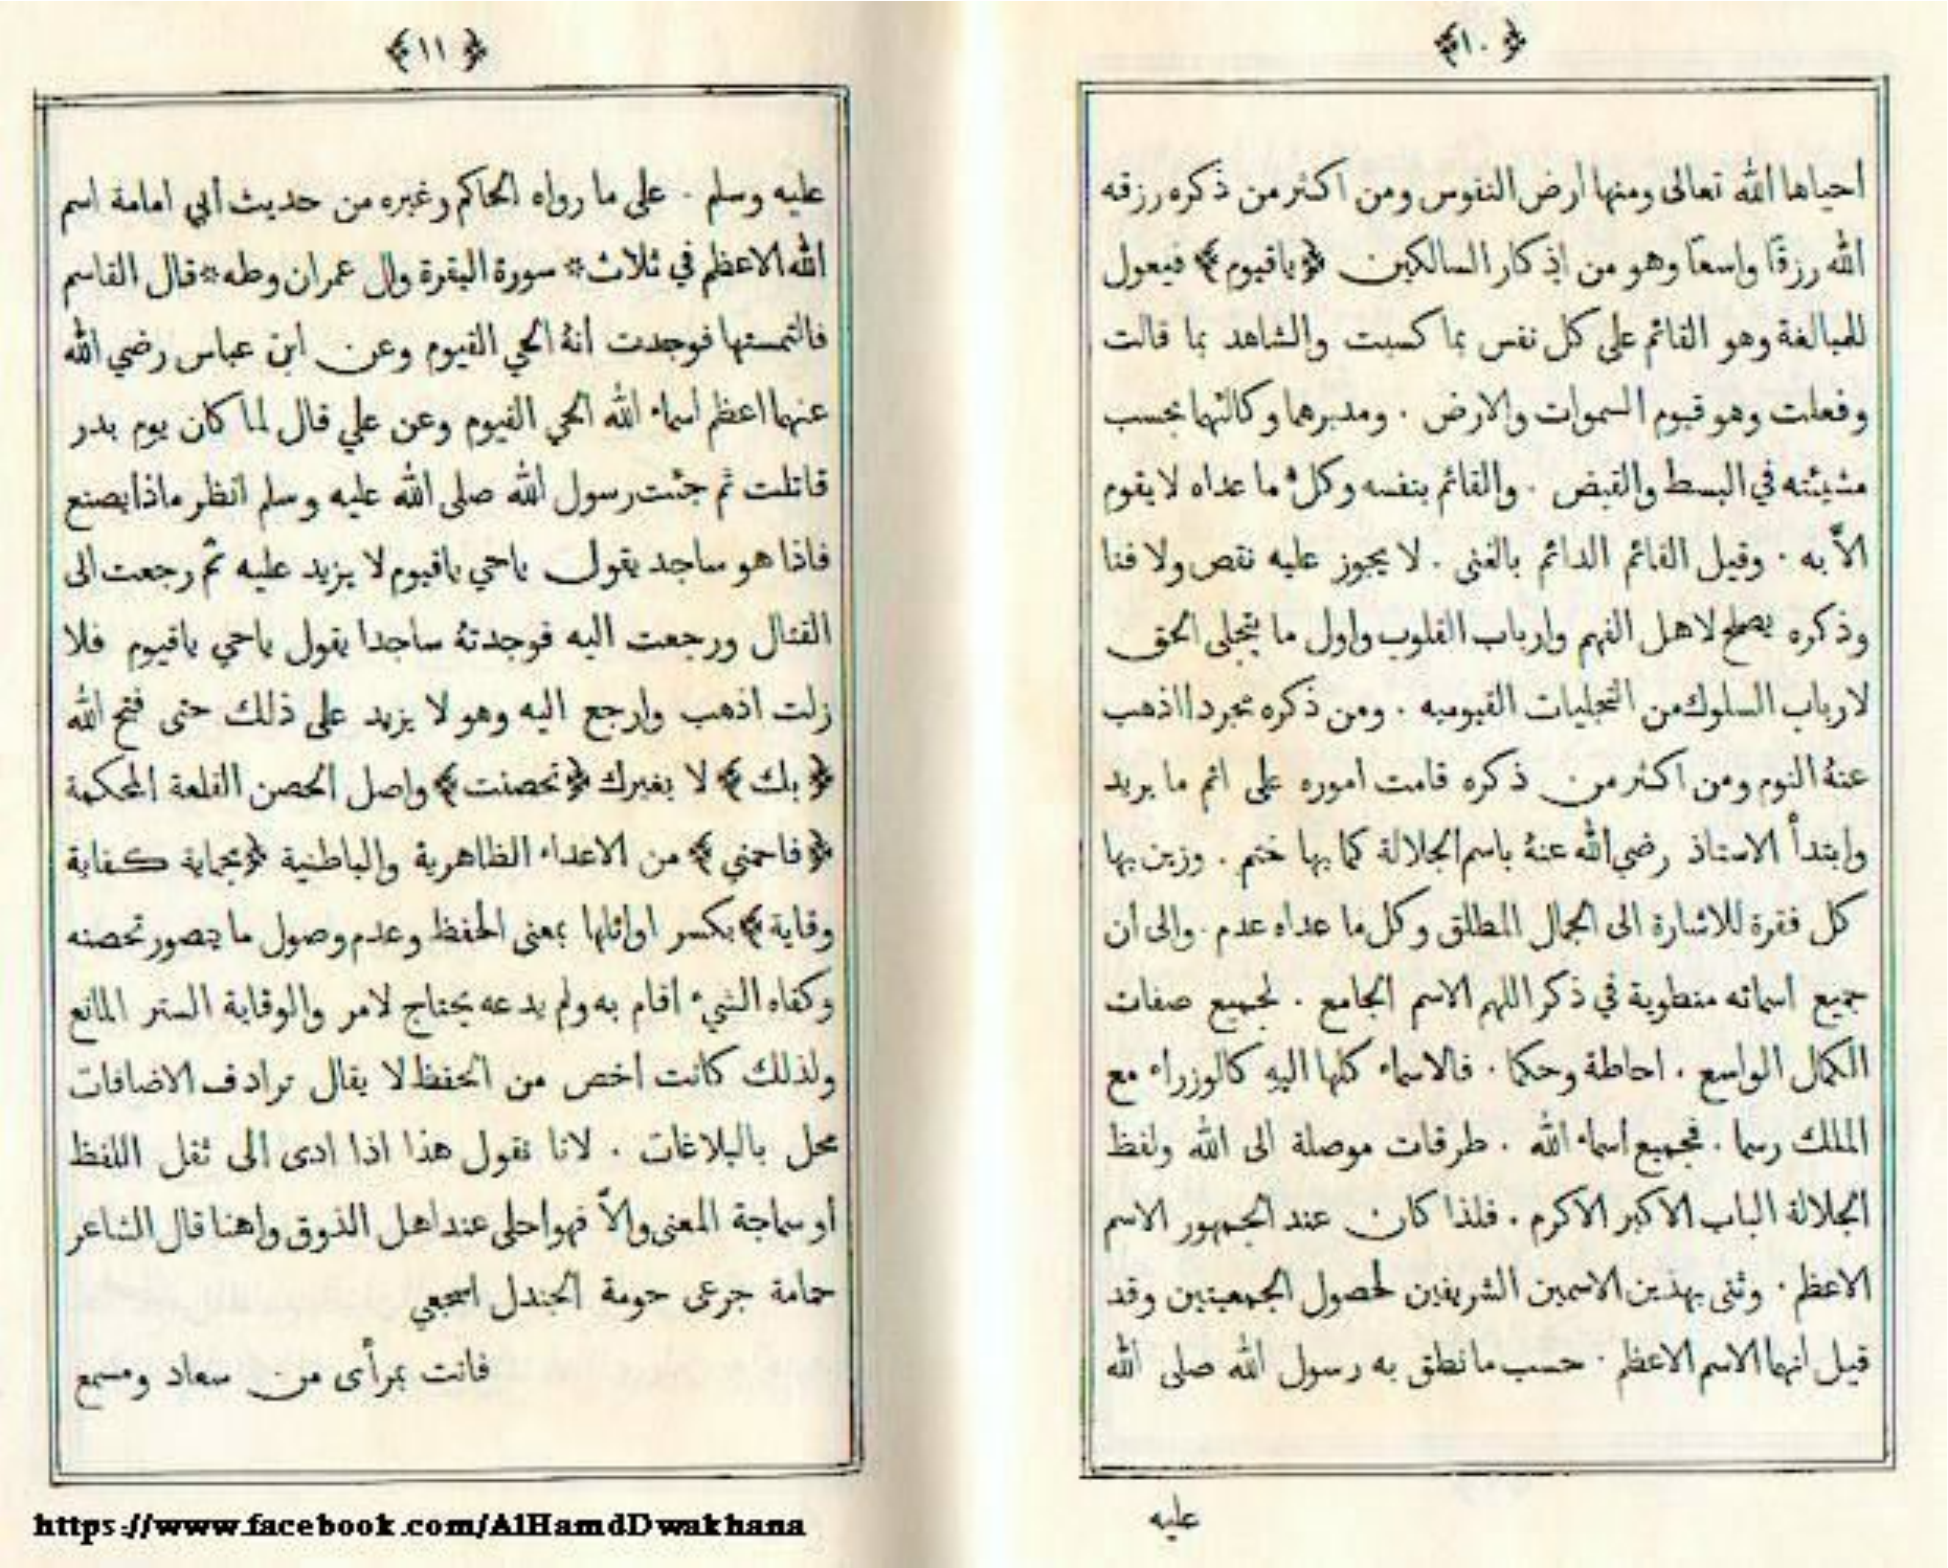 ﴿١٠﴾
احياها الله تعالى ومنها ارض النفوس ومن اكثر من ذكره رزقه
الله رزقًا واسعًا وهو من اذكار السالكين ﴿ياقيوم﴾ فيعول
للمبالغة وهو القائم على كل نفس بما كسبت والشاهد بما قالت
وفعلت وهو قيوم السموات والارض . ومدبرهما وكالئهما بحسب
مشيئته في البسط والقبض . والقائم بنفسه وكل ما عداه لا يقوم
الاّ به . وقيل القائم الدائم بالغنى . لا يجوز عليه نقص ولا فنا
وذكره يصلح لاهل الفهم وارباب القلوب واول ما يتجلى الحق
لارباب السلوك من التجليات القيوميه . ومن ذكره مجردا اذهب
عنهُ النوم ومن اكثر من ذكره قامت اموره على اتم ما يريد
وابتدأ الاستاذ رضي الله عنهُ باسم الجلالة كما بها ختم . وزين بها
كل فقرة للاشارة الى الجمال المطلق وكل ما عداه عدم . والى ان
جميع اسمائه منطوية في ذكر اللهم الاسم الجامع . لجميع صفات
الكمال الواسع . احاطة وحكما . فالاسماء كلها اليهِ كالوزراء مع
الملك رسما . فجميع اسماء الله . طرقات موصلة الى الله ولفظ
الجلالة الباب الاكبر الاكرم . فلذا كان عند الجمهور الاسم
الاعظم . وثنى بهذين الاسمين الشريفين لحصول الجمعيتين وقد
قيل انهما الاسم الاعظم . حسب ما نطق به رسول الله صلى الله
عليه
﴿١١﴾
عليه وسلم . على ما رواه الحاكم وغيره من حديث أبي امامة اسم
الله الاعظم في ثلاث * سورة البقرة وال عمران وطه * قال القاسم
فالتمستها فوجدت انهُ الحي القيوم وعن ابن عباس رضي الله
عنهما اعظم اسماء الله الحي القيوم وعن علي قال لما كان يوم بدر
قاتلت ثم جئت رسول الله صلى الله عليه وسلم انظر ماذا يصنع
فاذا هو ساجد يقول ياحي ياقيوم لا يزيد عليه ثم رجعت الى
القتال ورجعت اليه فوجدتهُ ساجدا يقول ياحي ياقيوم فلا
زلت اذهب وارجع اليه وهو لا يزيد على ذلك حتى فتح الله
﴿بك﴾ لا بغيرك ﴿تحصنت﴾ واصل الحصن القلعة المحكمة
﴿فاحمني﴾ من الاعداء الظاهرية والباطنية ﴿بحماية كفاية
وقاية﴾ بكسر اوائلها بمعنى الحفظ وعدم وصول ما يتصور تحصنه
وكفاه الشيء اقام به ولم يدعه يحتاج لامر والوقاية الستر المانع
ولذلك كانت اخص من الحفظ لا يقال ترادف الاضافات
محل بالبلاغات . لانا نقول هذا اذا ادى الى ثقل اللفظ
او سماجة المعنى والاّ فهو احلى عند اهل الذوق واهنا قال الشاعر
حمامة جرعى حومة الجندل اسجعي
فانت بمرأى من سعاد ومسمع
https://www.facebook.com/AlHamdDwakhana